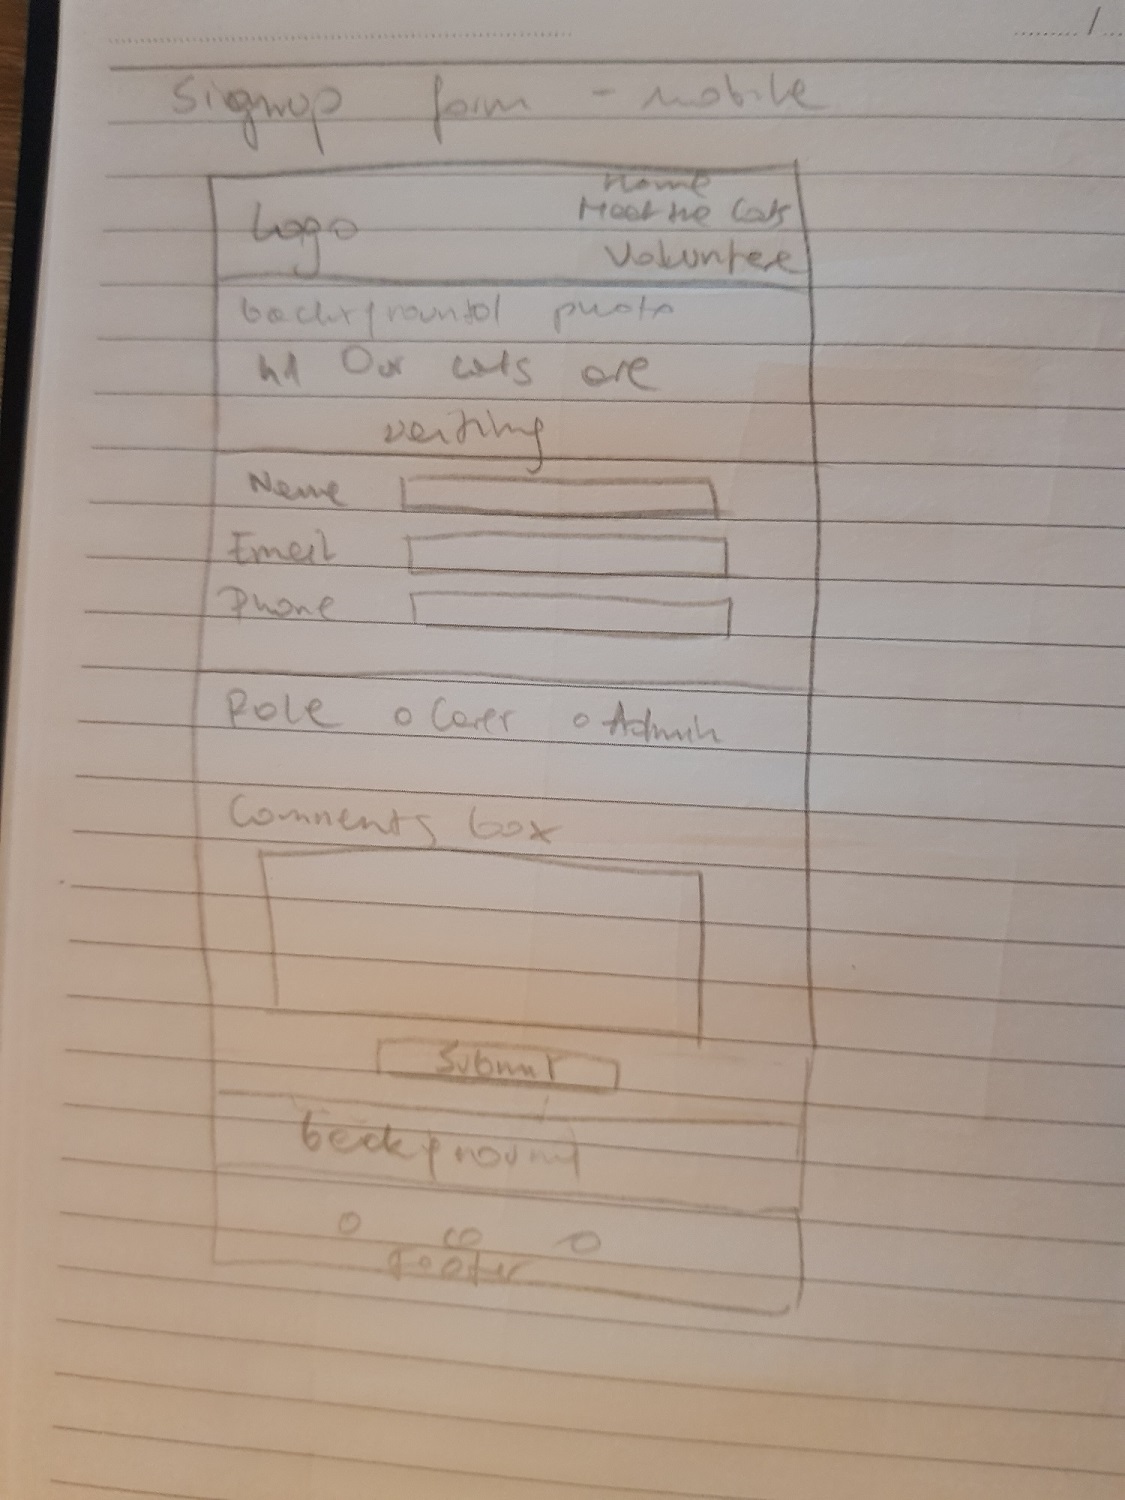 Signup form - mobile
Home
Meet the Cats
Logo
Volunteer
background photo
h1 Our cats are
waiting
Name
Email
Phone
Role o Carer o Admin
Comments box
Submit
background
footer